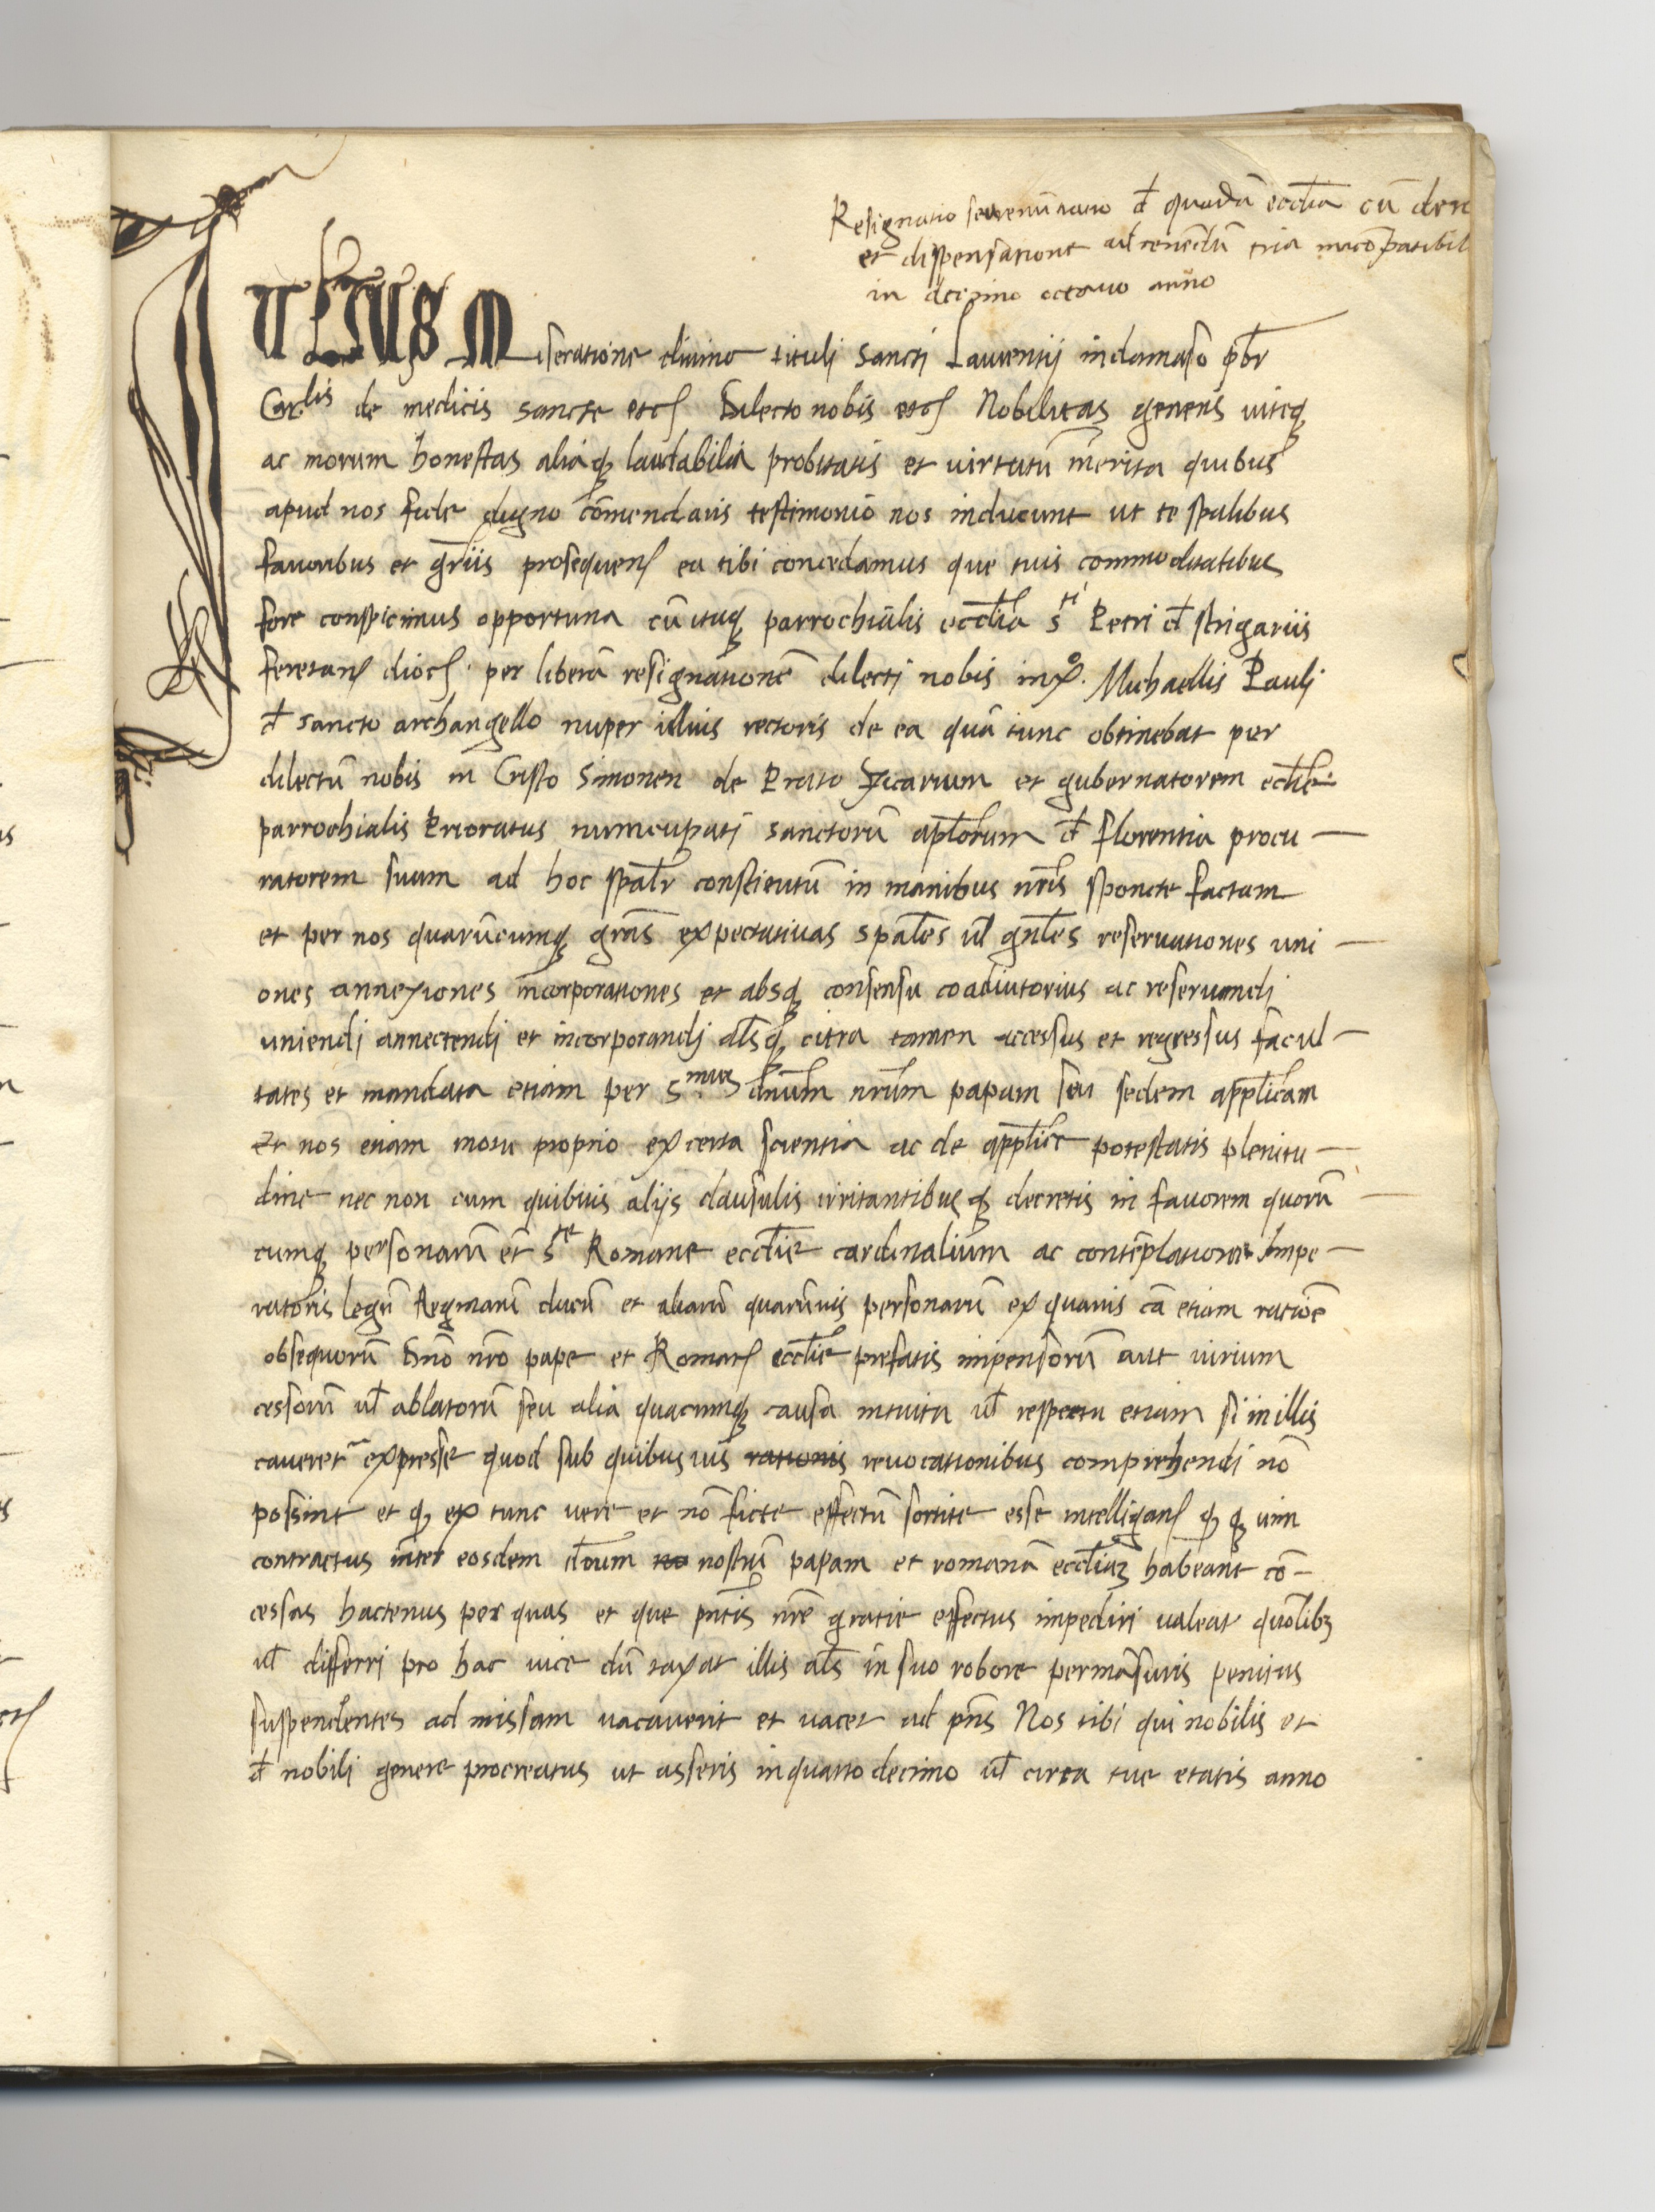 Resignatio seu renũtiatio đ quadã ecc̄lia cũ
et dispensatione ad tenẽdũ tria incõpatibil
in decimo octauo anno
IULIUS Miseratione diuina tituli Sancti Laurentij indamaso pb̄r
Car.lis de medicis sancte etcꝭ Dilecto nobis etcꝭ Nobilitas generis uiteqꝫ
ac morum honestas aliaqꝫ laudabilia probitatis et uirtutũ merita quibus
apud nos fide digno cõmendaris testimonio nos inducunt ut te sp̄alibus
fauoribus et gr̄iis prosequenꝭ ea tibi concedamus que tuis commoditatibus
fore conspicimus opportuna cũ itaqꝫ parrochialis eccl̄ia s.ti Petri đ strigariis
feretanꝭ diocꝭ per liberã resignationẽ dilecti nobis in xp̊. Michaellis Paulj
đ sancto archangello nuper illius rectoris de ea quã tunc obtinebat per
dilectũ nobis in Cristo Simonen de Prato Vicarium et gubernatorem eccl̄ie
parrochialis Prioratus nuncupati sanctorũ apl̄orum đ florentia procu —
ratorem suum ad hoc spāl̄r constitutũ in manibus nr̄is sponte factam
et per nos quarũcumqꝫ gr̄as expectatiuas spāl̄es ul̄ gñl̄es reseruationes uni —
ones annexiones incorporationes et absqꝫ consensu coadiutorius ac reseruandi
uniendi annectendj et incorporandj absqꝫ citra tamen accessus et regressus facul —
tates et mandata etiam per S.mum dñum nr̄um papam seu sedem appl̄icam
Et nos etiam motu proprio ex certa scientia ac de appl̄ice potestatis plenitu —
dine nec non cum quibuis alijs clausulis irritantibusqꝫ decretis in fauorem quorũ —
cumqꝫ personarũ et̃ s.te Romane eccl̄ie cardinalium ac contẽplatione Impe —
ratoris Regũ Reginarũ ducũ et aliarũ quarũuis personarũ ex quauis cã etiam ratiõe
obsequiorũ Dño nr̄o pape et Romanꝭ eccl̄ie prefatis impensorũ aut uirium
cessorũ ul̄ ablatorũ seu alia quacumqꝫ causa intuitu ul̄ respectu etiam si in illis
caueret̃ expresse quod sub quibusuis rationis reuocationibus comprehendi nõ
possint et ꝙ ex tunc uere et nõ ficte effectũ sortite esse intelliganꝭ ꝙ qꝫ uim
contractus inter eosdem dñum no nostrũ papam et romanã eccl̄iaꝫ habeant cõ —
cessas hactenus per quas et que pñtis nr̄e gratie effectus impediri ualeat quõlibꝫ
ul̄ differri pro hac uice dũ taxat illis al̄s in suo robore permãsuris penitus
suspendentes ad missam uacauerit et uacet ad pñs Nos tibi qui nobilis et
đ nobili genere procreatus ut asseris in quarto decimo ul̄ circa tue etatis anno